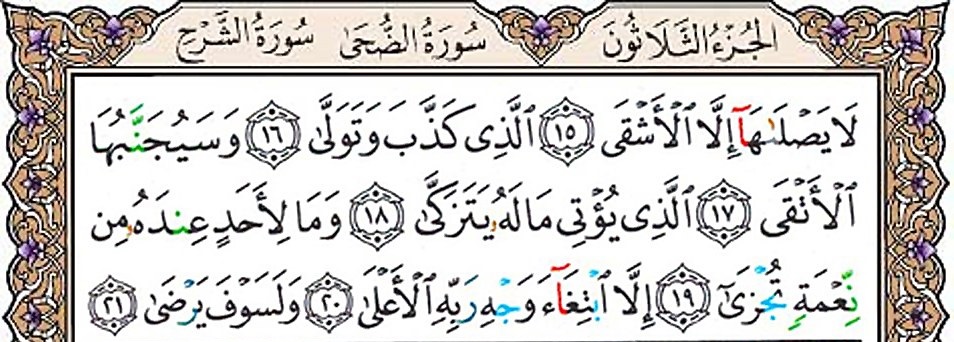 الجُزْءُ الثَّلَاثُونَ سُورَةُ الضُّحَىٰ سُورَةُ الشَّرْحِ
لَا يَصْلَىٰهَآ إِلَّا ٱلْأَشْقَى ١٥ ٱلَّذِى كَذَّبَ وَتَوَلَّىٰ ١٦ وَسَيُجَنَّبُهَا
ٱلْأَتْقَى ١٧ ٱلَّذِى يُؤْتِى مَالَهُۥ يَتَزَكَّىٰ ١٨ وَمَا لِأَحَدٍ عِندَهُۥ مِن
نِّعْمَةٍ تُجْزَىٰٓ ١٩ إِلَّا ٱبْتِغَآءَ وَجْهِ رَبِّهِ ٱلْأَعْلَىٰ ٢٠ وَلَسَوْفَ يَرْضَىٰ ٢١